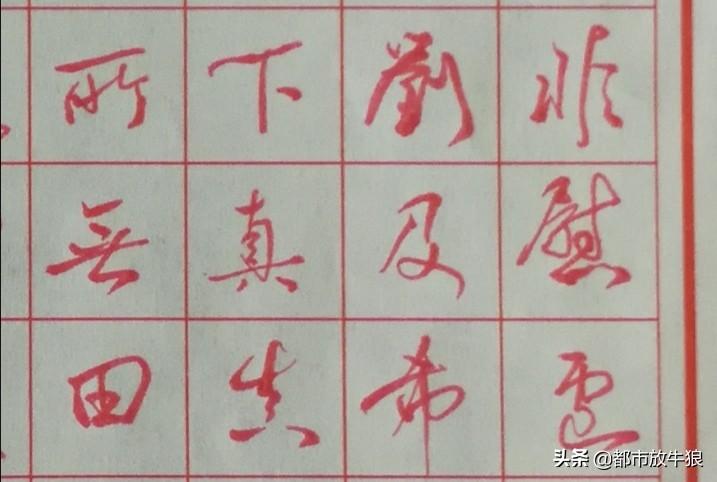 非慰
劉及希
下真真
所無田
头条 @都市放牛狼